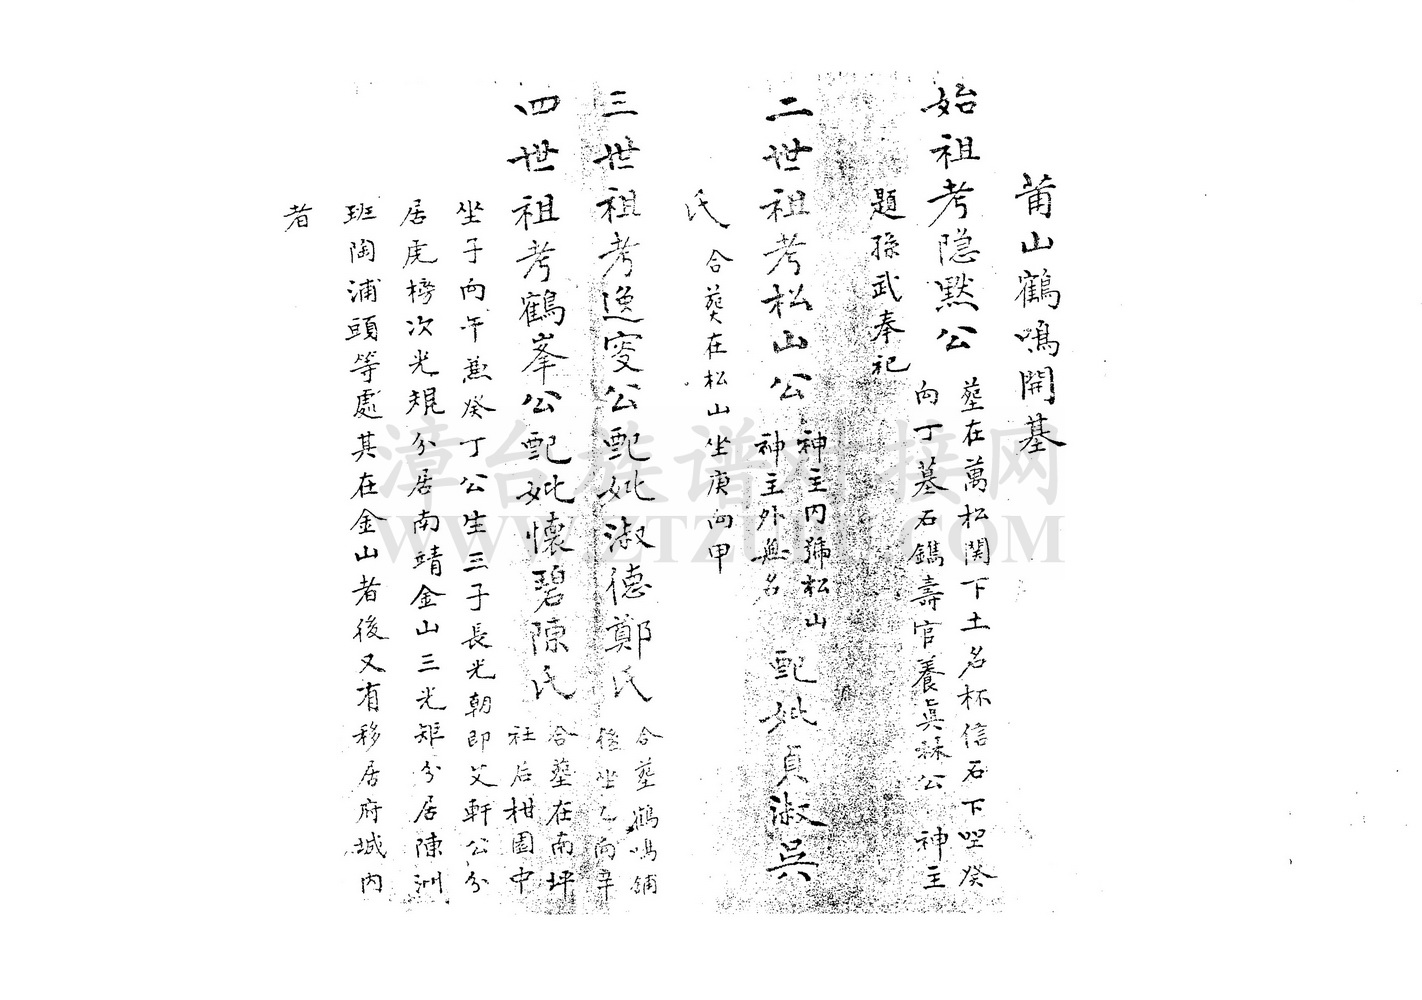 莆山鶴鳴開基
始祖考隐默公
塟在萬松関下土名杯信石下坐癸
向丁墓石鐫壽官養真禄公 神主
題孫武奉祀
二世祖考松山公
神主内號松山
神主外無名
配妣貞淑吳
氏
合葵在松山坐庚向甲
三世祖考逸叟公配妣淑德鄭氏
合塟鶴鳴鋪
後坐乙向辛
四世祖考鶴峯公配妣懷碧陳氏
合塟在南坪
社后柑園中
坐子向午兼癸丁公生三子長光朝即艾軒公分
居虎榜次光規分居南靖金山三光矩分居陳洲
班陶浦頭等處其在金山者後又有移居府城内
者
漳台族谱对接网
WWW.ZTZUPU.COM